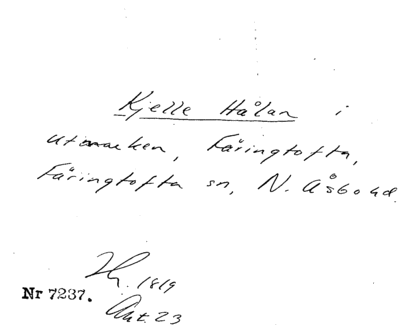 Kjelle Hålan i
utmarken, Färingtofta,
Färingtofta sn, N. Åsbo hd.
1819
Nr 7237.
Ant. 23